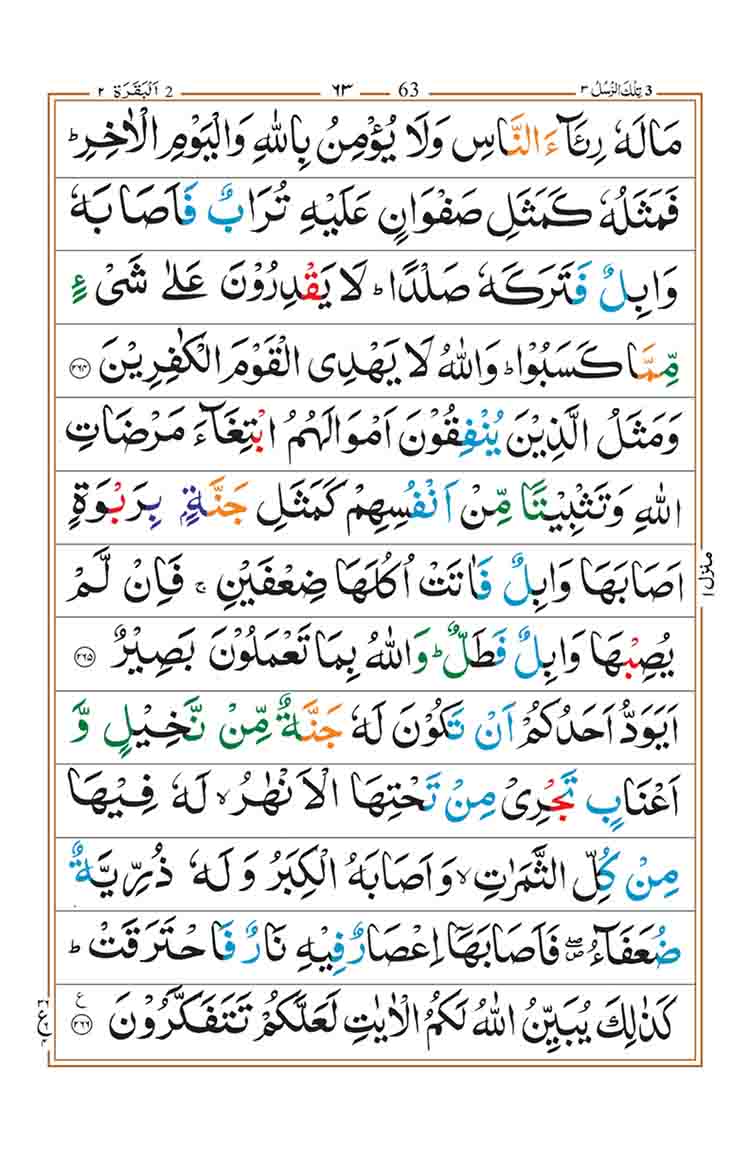 3 تِلْكَ الرُّسُلُ ٣ 63 ٦٣ 2 اَلْبَقَرَة ٢
مَالَهٗ رِئَآءَ النَّاسِ وَلَا يُؤْمِنُ بِاللّٰهِ وَالْيَوْمِ الْاٰخِرِ ؕ
فَمَثَلُهٗ كَمَثَلِ صَفْوَانٍ عَلَيْهِ تُرَابٌ فَاَصَابَهٗ
وَابِلٌ فَتَرَكَهٗ صَلْدًا ؕ لَا يَقْدِرُوْنَ عَلٰى شَىْءٍ
مِّمَّا كَسَبُوْا ؕ وَاللّٰهُ لَا يَهْدِى الْقَوْمَ الْكٰفِرِيْنَ ۝۲۶۴
وَمَثَلُ الَّذِيْنَ يُنْفِقُوْنَ اَمْوَالَهُمُ ابْتِغَآءَ مَرْضَاتِ
اللّٰهِ وَتَثْبِيْتًا مِّنْ اَنْفُسِهِمْ كَمَثَلِ جَنَّةٍۭ بِرَبْوَةٍ
اَصَابَهَا وَابِلٌ فَاٰتَتْ اُكُلَهَا ضِعْفَيْنِ ۚ فَاِنْ لَّمْ
يُصِبْهَا وَابِلٌ فَطَلٌّ ؕ وَاللّٰهُ بِمَا تَعْمَلُوْنَ بَصِيْرٌ ۝۲۶۵
اَيَوَدُّ اَحَدُكُمْ اَنْ تَكُوْنَ لَهٗ جَنَّةٌ مِّنْ نَّخِيْلٍ وَّ
اَعْنَابٍ تَجْرِىْ مِنْ تَحْتِهَا الْاَنْهٰرُ ۙ لَهٗ فِيْهَا
مِنْ كُلِّ الثَّمَرٰتِ ۙ وَاَصَابَهُ الْكِبَرُ وَلَهٗ ذُرِّيَّةٌ
ضُعَفَآءُ ۖ فَاَصَابَهَاۤ اِعْصَارٌ فِيْهِ نَارٌ فَاحْتَرَقَتْ ؕ
كَذٰلِكَ يُبَيِّنُ اللّٰهُ لَكُمُ الْاٰيٰتِ لَعَلَّكُمْ تَتَفَكَّرُوْنَ ۝۲۶۶ ع
منزل ۱